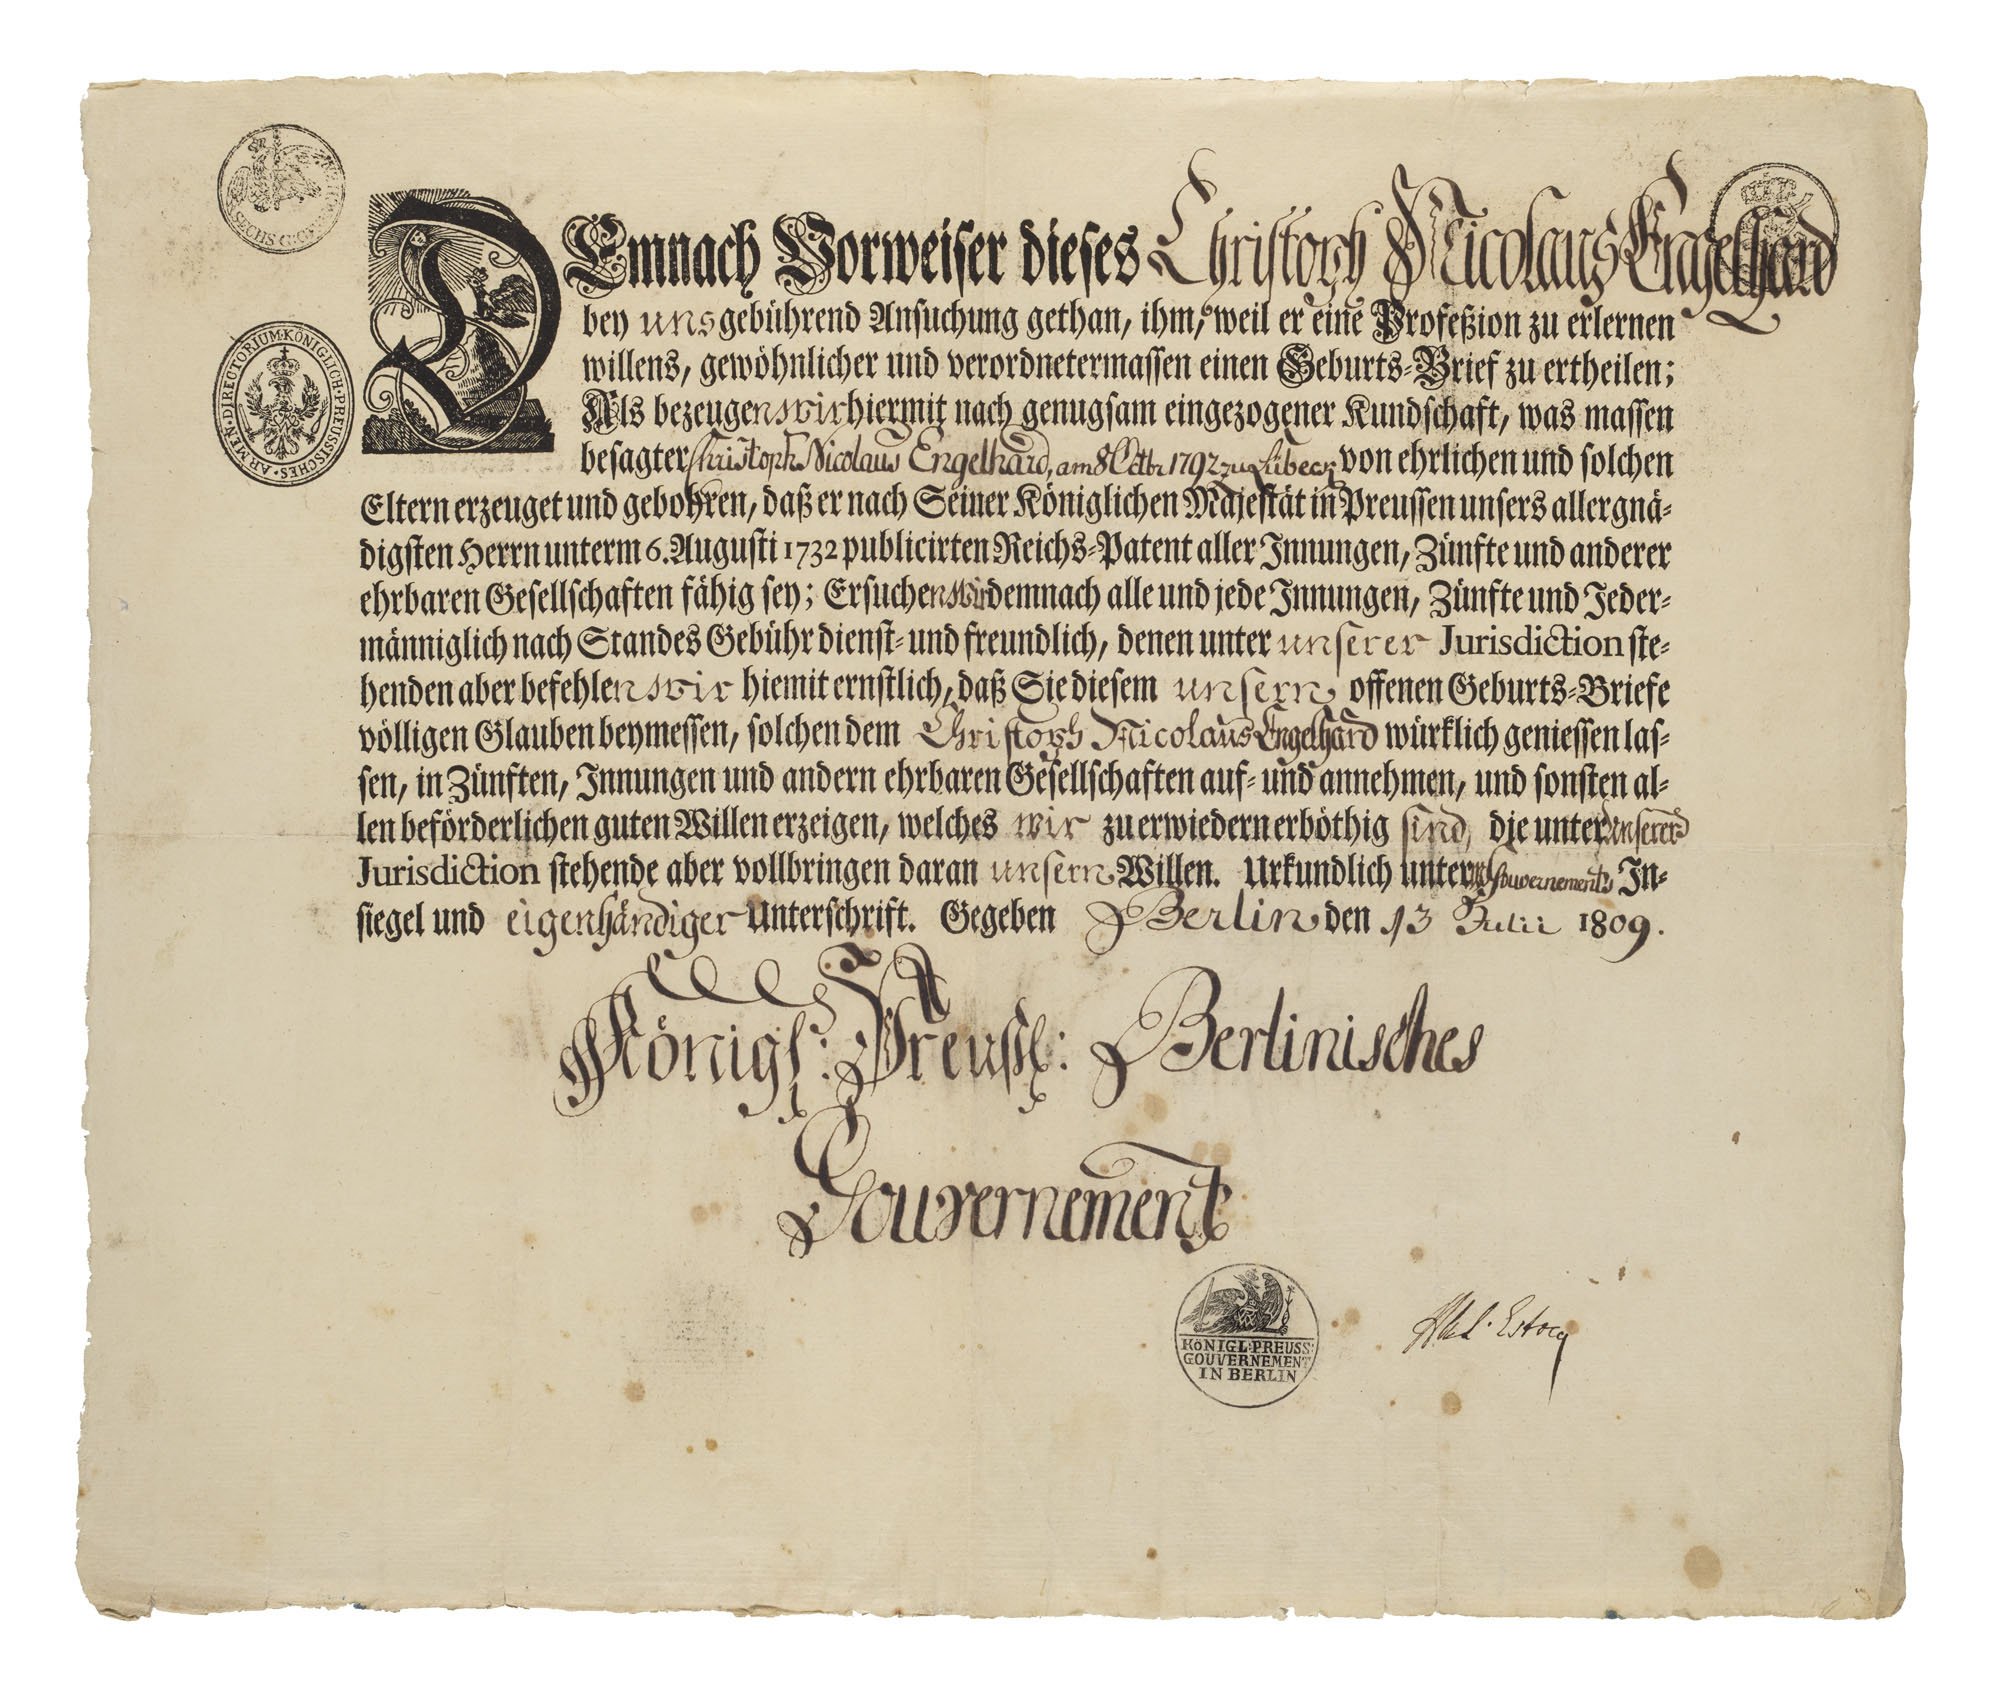 SECHS G. GR.
ARMEN·DIRECTORIUM·KÖNIGLICH·PREUSSISCHES·
DEmnach Vorweiser dieses Christoph Nicolaus Engelhard
bey uns gebührend Ansuchung gethan, ihm, weil er eine Profeßion zu erlernen
willens, gewöhnlicher und verordnetermassen einen Geburts-Brief zu ertheilen;
Als bezeugen wir hiermit nach genugsam eingezogener Kundschaft, was massen
besagter Christoph Nicolaus Engelhard, am 8 Octbr 1792 zu Lübeck von ehrlichen und solchen
Eltern erzeuget und gebohren, daß er nach Seiner Königlichen Majestät in Preussen unsers allergnä-
digsten Herrn unterm 6. Augusti 1732 publicirten Reichs-Patent aller Innungen, Zünfte und anderer
ehrbaren Gesellschaften fähig sey; Ersuchen wir demnach alle und jede Innungen, Zünfte und Jeder-
männiglich nach Standes Gebühr dienst- und freundlich, denen unter unserer Jurisdiction ste-
henden aber befehlen wir hiemit ernstlich, daß Sie diesem unsern offenen Geburts-Briefe
völligen Glauben beymessen, solchen dem Christoph Nicolaus Engelhard würklich geniessen las-
sen, in Zünften, Innungen und andern ehrbaren Gesellschaften auf- und annehmen, und sonsten al-
len beförderlichen guten Willen erzeigen, welches wir zu erwiedern erböthig sind, die unter unserer
Jurisdiction stehende aber vollbringen daran unsern Willen. Urkundlich unterm Gouvernements In-
siegel und eigenhändiger Unterschrift. Gegeben Berlin den 13 Julii 1809.
Königl: Preußl: Berlinisches
Gouvernement
KÖNIGL:PREUSS:
GOUVERNEMENT
IN BERLIN
L'Estocq